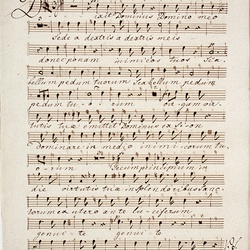 Dixit Dominus Domino meo
Sede a dextris a dextris meis
donec ponam inimicos tuos sca
bellum pedum tuorum scabellum pedum
pedum tuorum virgam vir
tutis tuæ emittet Dominus ex Sion
dominare in medio inimicorum tu
orum Tecum principium in
die virtutis tuæ in splendoribus sanc
torum ex utero ante luciferum
genui te genui te